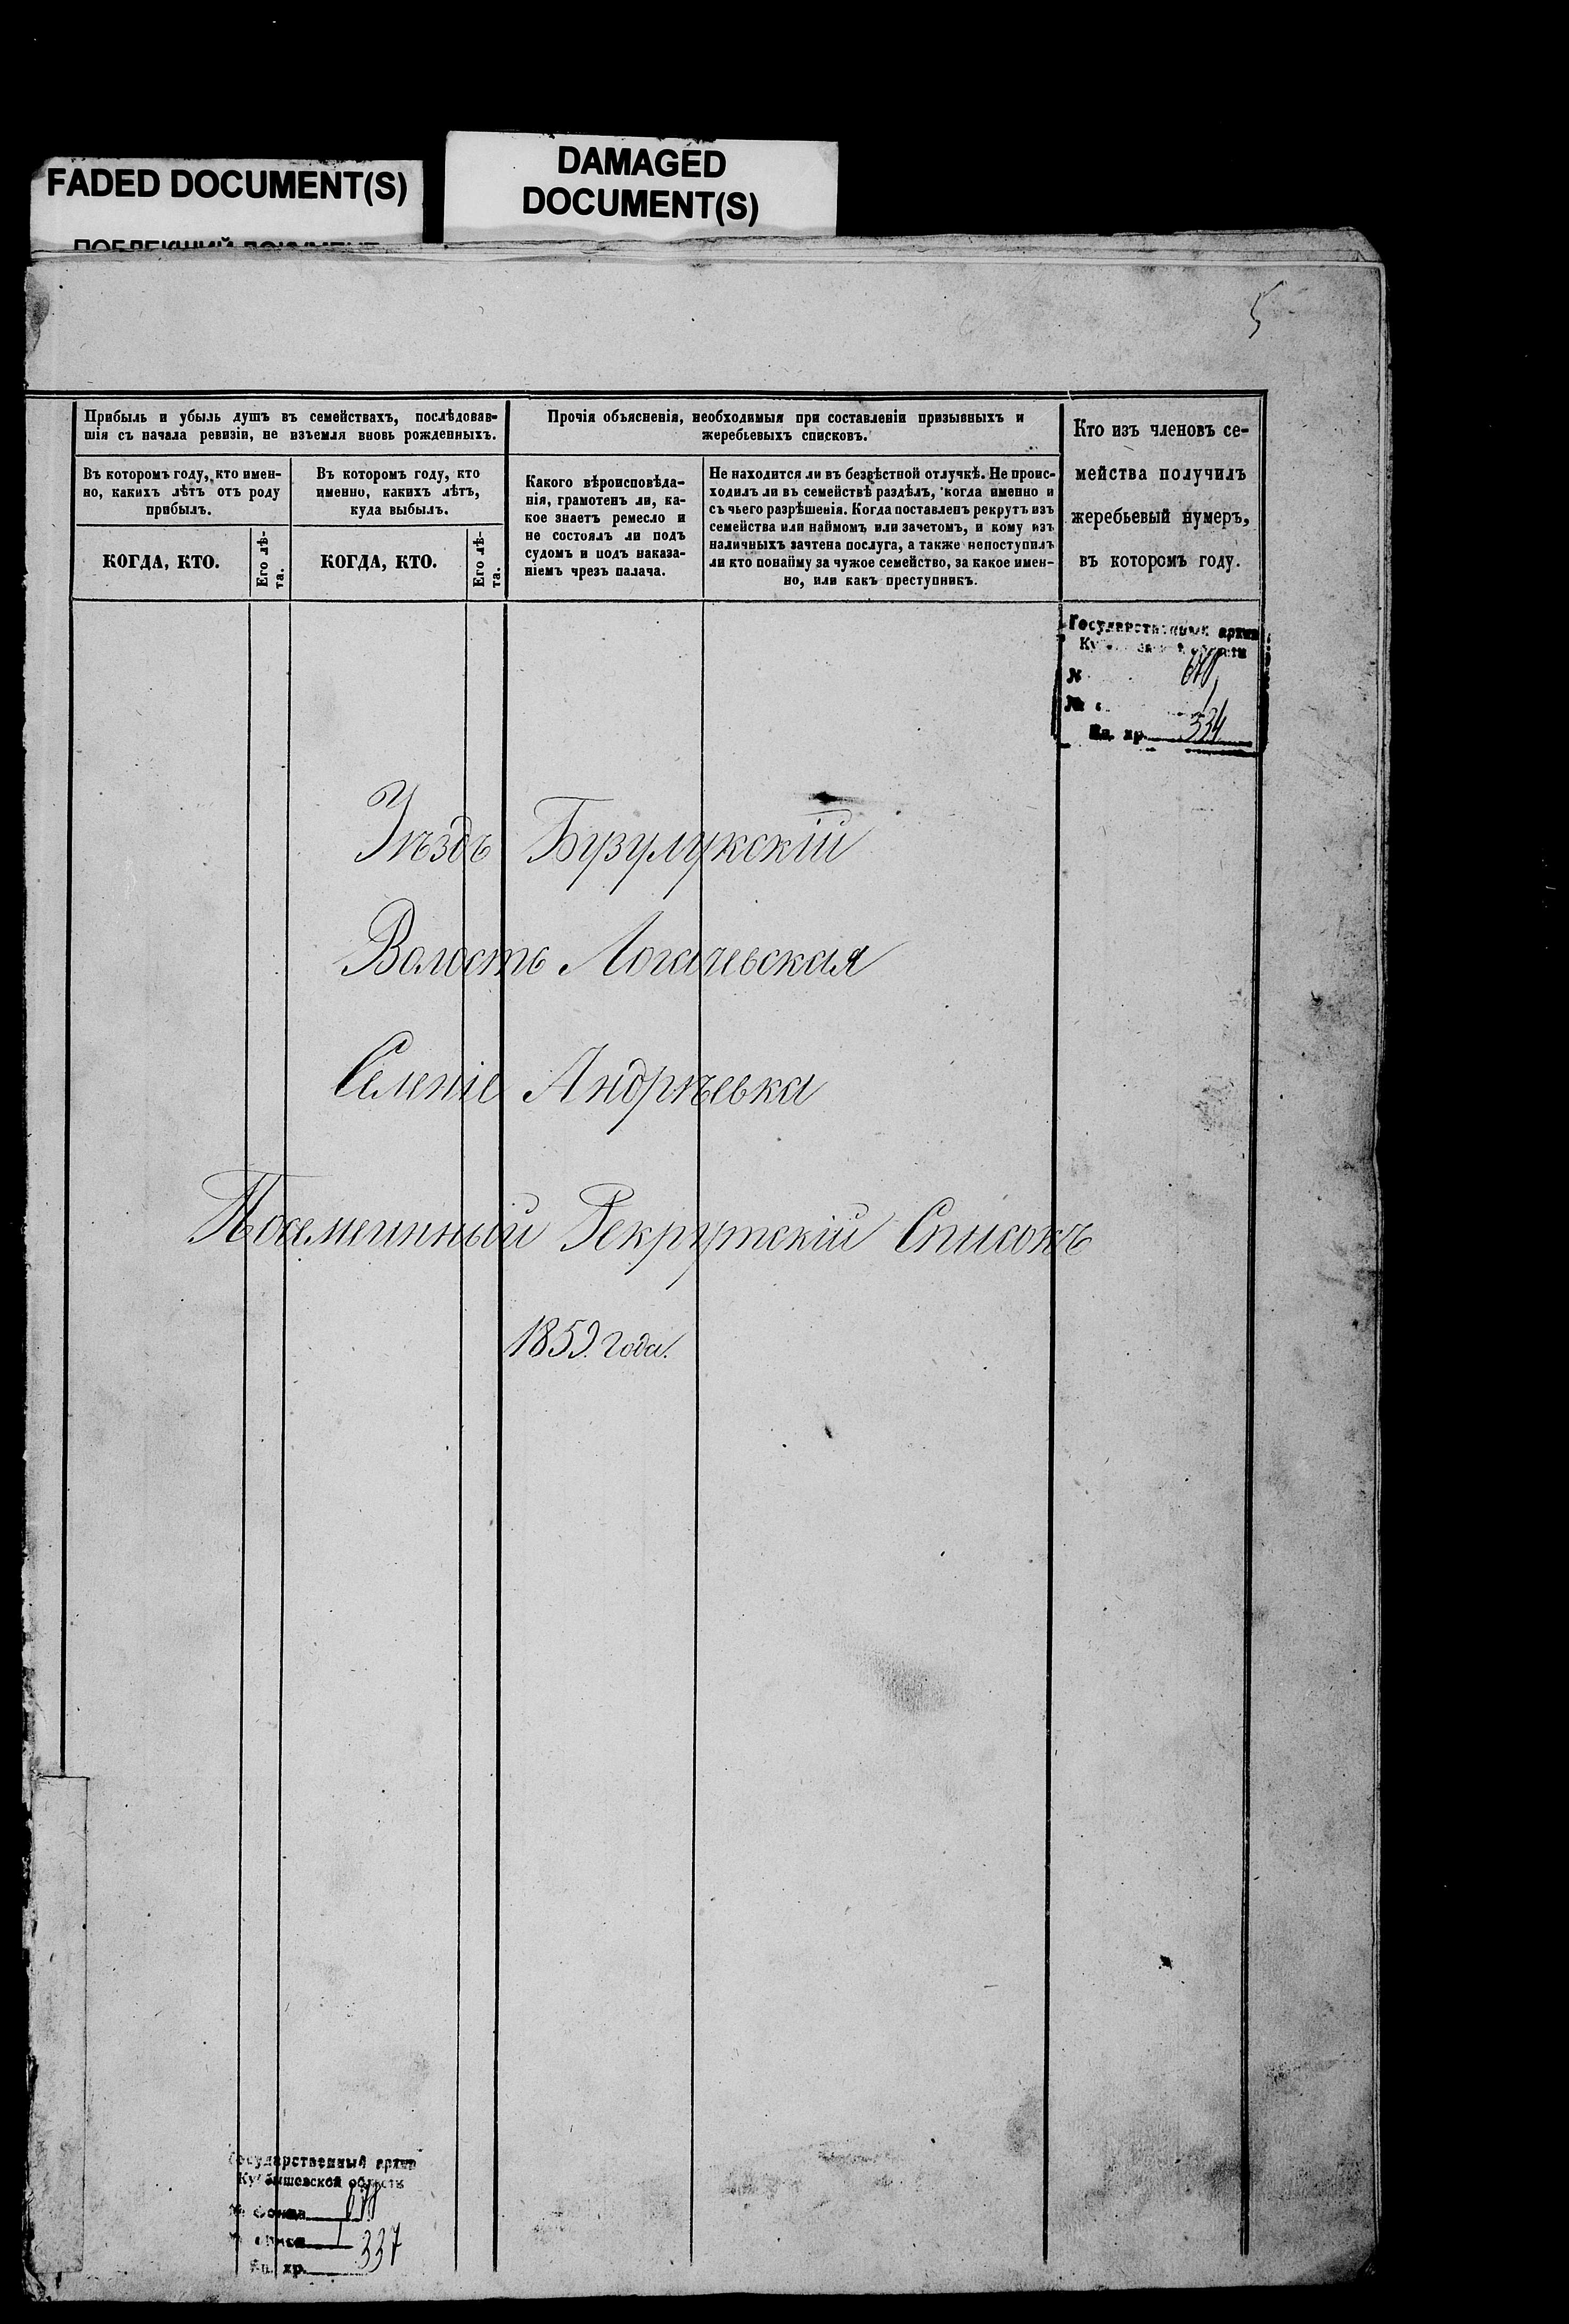 FADED DOCUMENT(S)
DAMAGED
DOCUMENT(S)
5
Прибыль и убыль душъ въ семействахъ, послѣдовав-
шія съ начала ревизіи, не изъемля вновь рожденныхъ.
Въ которомъ году, кто имен-
но, какихъ лѣтъ отъ роду
прибылъ.
Въ которомъ году, кто
именно, какихъ лѣтъ,
куда выбылъ.
КОГДА, КТО.
Его лѣ-
та.
КОГДА, КТО.
Его лѣ-
та.
Прочія объясненія, необходимыя при составленіи призывныхъ и
жеребьевыхъ списковъ.
Какого вѣроисповѣда-
нія, грамотенъ ли, ка-
кое знаетъ ремесло и
не состоялъ ли подъ
судомъ и подъ наказа-
ніемъ чрезъ палача.
Не находится ли въ безвѣстной отлучкѣ. Не проис-
ходилъ ли въ семействѣ раздѣлъ, когда именно и
съ чьего разрѣшенія. Когда поставленъ рекрутъ изъ
семейства или наймомъ или зачетомъ, и кому изъ
наличныхъ зачтена послуга, а также непоступилъ
ли кто понайму за чужое семейство, за какое имен-
но, или какъ преступникъ.
Кто изъ членовъ се-
мейства получилъ
жеребьевый нумеръ,
въ которомъ году.
Государственный архив
№
№
Ед. хр. 334
Уѣздъ Бузулукскій
Волость Логачевская
Селеніе Андрѣевка
Посемейнный Рекрутскій Списокъ
1859. года.
Государственный архив
Куйбышевской области
№ фонда
№ описи 1
Ед. хр. 337